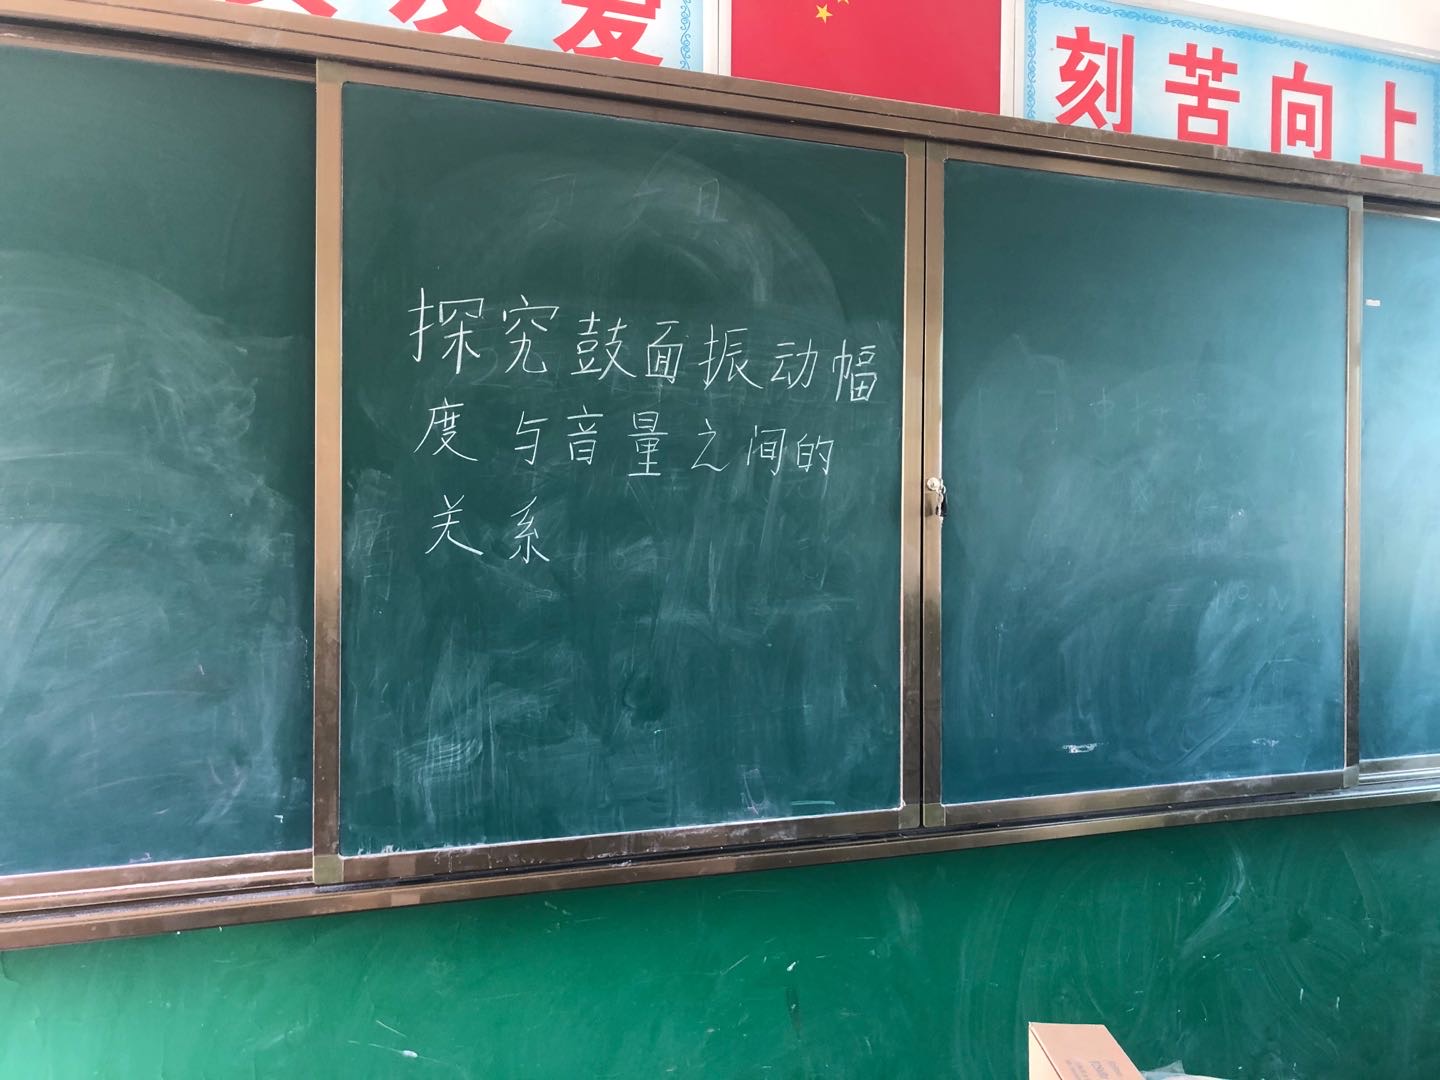 友爱
刻苦向上
探究鼓面振动幅
度与音量之间的
关系